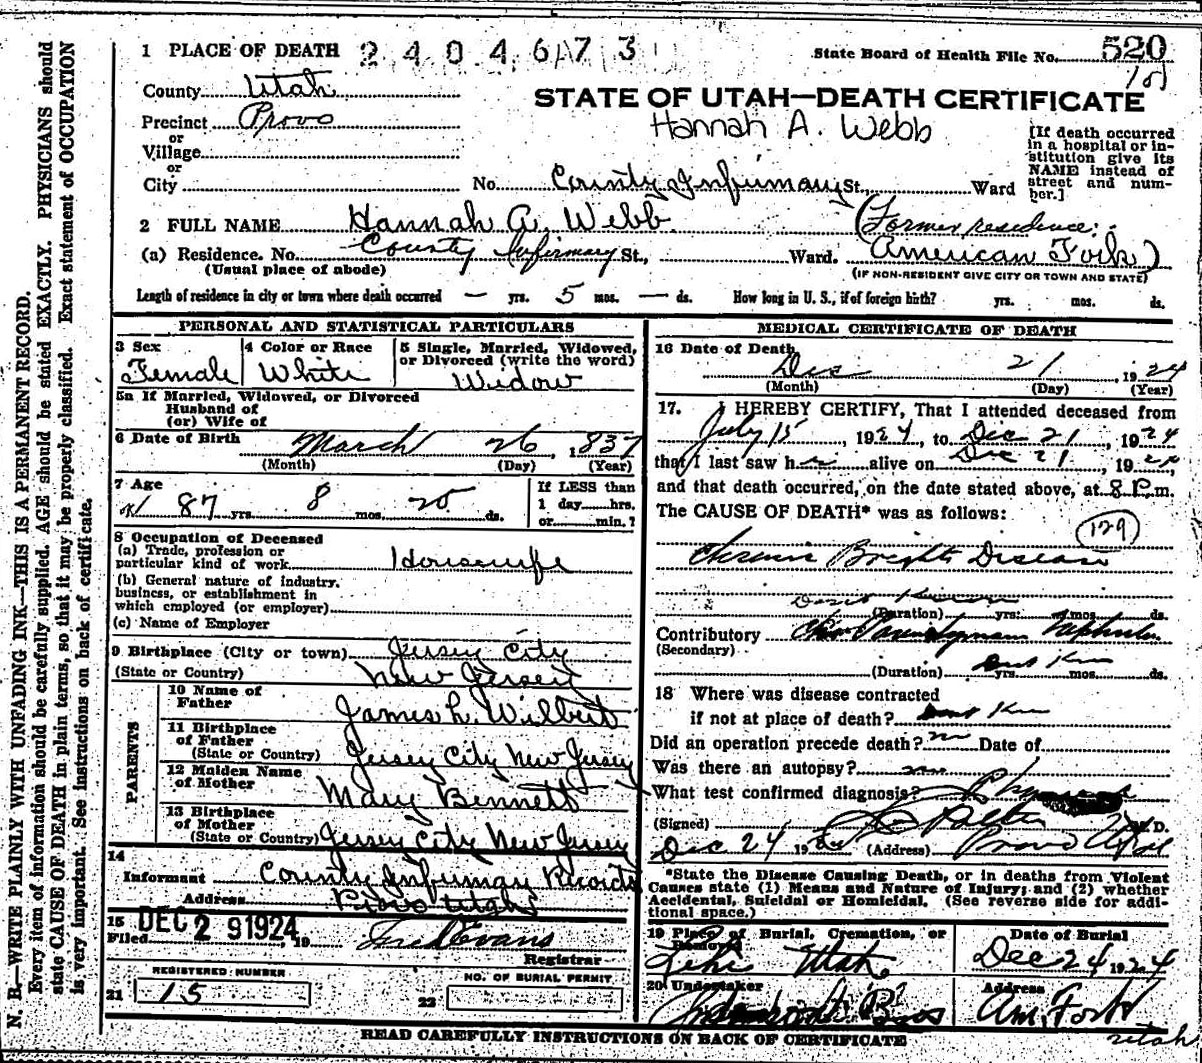 N. B.—WRITE PLAINLY WITH UNFADING INK—THIS IS A PERMANENT RECORD.
Every item of information should be carefully supplied. AGE should be stated EXACTLY. PHYSICIANS should
state CAUSE OF DEATH in plain terms, so that it may be properly classified. Exact statement of OCCUPATION
is very important. See instructions on back of certificate.
1 PLACE OF DEATH 2404673
State Board of Health File No. 520
County Utah
STATE OF UTAH—DEATH CERTIFICATE
Precinct Provo
Hannah A. Webb
or
Village
or
City No. County Infirmary St., Ward
[If death occurred
in a hospital or in-
stitution give its
NAME instead of
street and num-
ber.]
2 FULL NAME Hannah A. Webb (Former residence:
(a) Residence. No. County Infirmary St., Ward. American Fork)
(Usual place of abode) (IF NON-RESIDENT GIVE CITY OR TOWN AND STATE)
Length of residence in city or town where death occurred — yrs. 5 mos. — ds. How long in U. S., if of foreign birth? yrs. mos. ds.
PERSONAL AND STATISTICAL PARTICULARS
3 Sex
Female
4 Color or Race
White
5 Single, Married, Widowed,
or Divorced (write the word)
Widow
5a If Married, Widowed, or Divorced
Husband of
(or) Wife of
6 Date of Birth March 26, 1837
(Month) (Day) (Year)
7 Age
87 yrs. 8 mos. 25 ds.
If LESS than
1 day hrs.
or min.?
8 Occupation of Deceased
(a) Trade, profession or
particular kind of work Housewife
(b) General nature of industry.
business, or establishment in
which employed (or employer)
(c) Name of Employer
9 Birthplace (City or town) Jersey City
(State or Country) New Jersey
PARENTS
10 Name of
Father James L. Wilbert
11 Birthplace
of Father
(State or Country) Jersey City New Jersey
12 Maiden Name
of Mother Mary Bennett
13 Birthplace
of Mother
(State or Country) Jersey City New Jersey
14
Informant County Infirmary Records
Address Provo Utah
15 DEC 29 1924
Filed , 19 Evans
Registrar
REGISTERED NUMBER
21 15
NO. OF BURIAL PERMIT
22
MEDICAL CERTIFICATE OF DEATH
16 Date of Death
Dec 21, 1924
(Month) (Day) (Year)
17. I HEREBY CERTIFY, That I attended deceased from
July 15, 1924, to Dec 21, 1924
that I last saw her alive on Dec 21, 1924
and that death occurred, on the date stated above, at 8 P.m.
The CAUSE OF DEATH* was as follows:
129
Chronic Brights Disease
(Duration) yrs. mos. ds.
Contributory
(Secondary)
(Duration) yrs. mos. ds.
18 Where was disease contracted
if not at place of death?
Did an operation precede death? no Date of
Was there an autopsy? no
What test confirmed diagnosis?
(Signed) M. D.
Dec 24 19 (Address) Provo
*State the Disease Causing Death, or in deaths from Violent
Causes state (1) Means and Nature of Injury; and (2) whether
Accidental, Suicidal or Homicidal. (See reverse side for addi-
tional space.)
19 Place of Burial, Cremation, or
Removal
Lehi Utah
Date of Burial
Dec 24 1924
20 Undertaker
Bros
Address
Am. Fork
Utah
READ CAREFULLY INSTRUCTIONS ON BACK OF CERTIFICATE